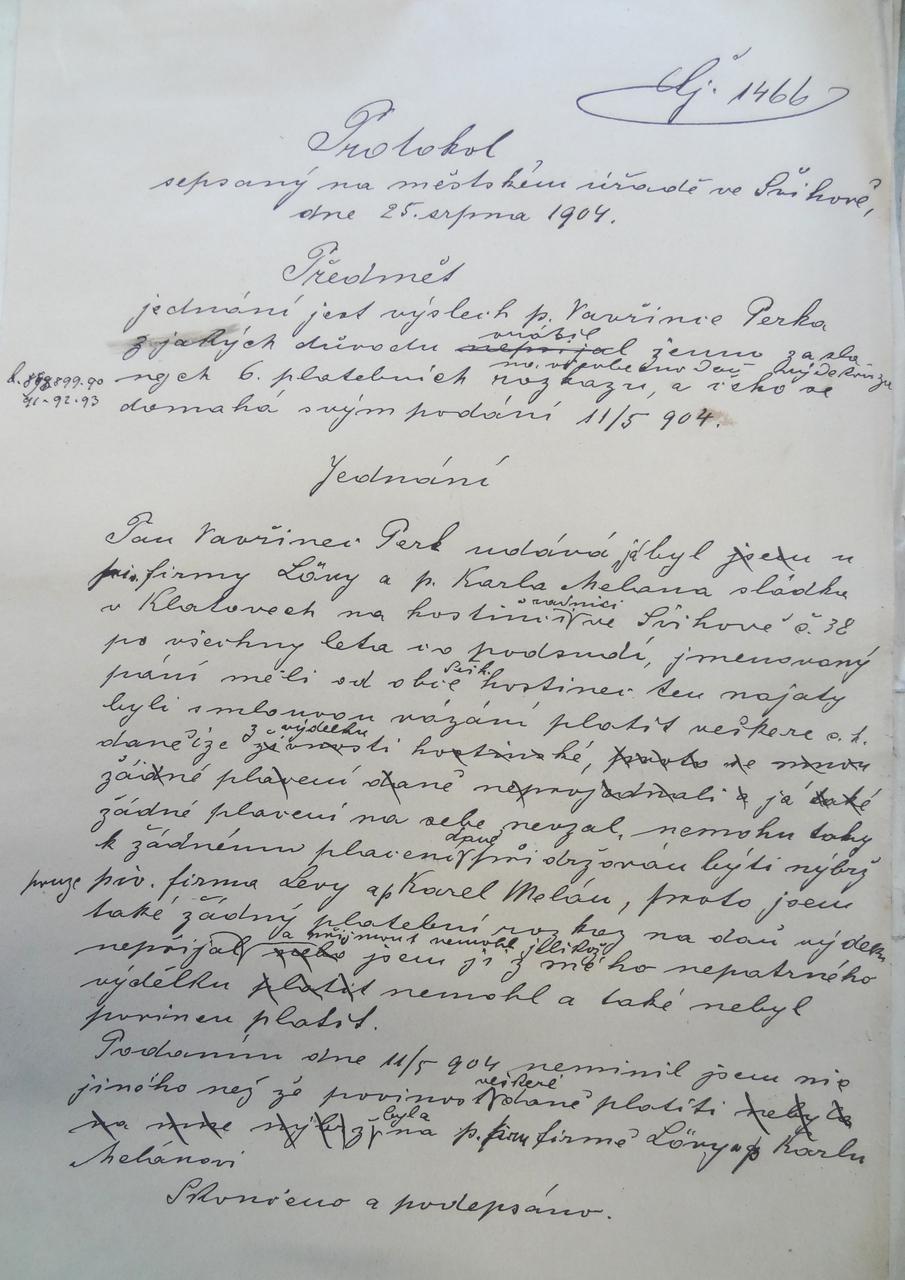 Čj. 1466
Protokol
sepsaný na městském úřadě ve Švihově,
dne 25. srpna 1904.
Předmět
jednání jest výslech p. Vavřince Perka
z jakých důvodu vrátil nepřijal jemu zasla
ných 6. platebních rozkazu, a čeho se
l. 899.90
91-92.93
domahá svým podání 11/5 904.
Jednání
Pan Vavřinec Perk udává já byl jsem u
piv. firmy Löwy a p. Karla Melana sládku
v Klatovech na hostinci v radnici ve Švihově č. 38
po všechny leta co podsudí, jmenovaný
páni měli od obce Švih. hostinec ten najaty
byli smlouvou vázání platit veškere c. k.
daně číze z výdělku živnosti hostinské, proto se mnou
žádné placení daně neprojednali a já také
žádné placení na sebe nevzal, nemohu tohy
k žádnému placeni daně přidržován býti nýbrž
pouze piv. firma Levy a p Karel Melán, proto jsem
také žádný platební rozkaz na daň výdělk.
nepřijal a přijmout nemohl jelikož nebo jsem ji z mého nepatrného
výdělku platit nemohl a také nebyl
povinen platit.
Podaním dne 11/5 904 neminil jsem nic
jiného než že povinost veškeré daně platiti nebyla
na mne nýbrž byla na p. firmě Löwy a p Karlu
Melánovi
Skončeno a podepsáno.